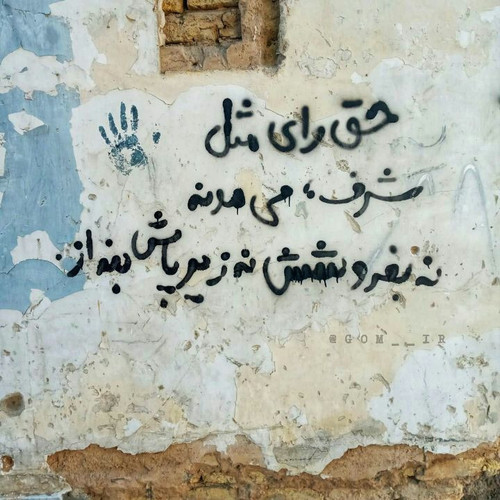 حق رای مثل
شرف، می مونه
نه بفروشش نه زیر پاش بنداز.
@GOM__IR